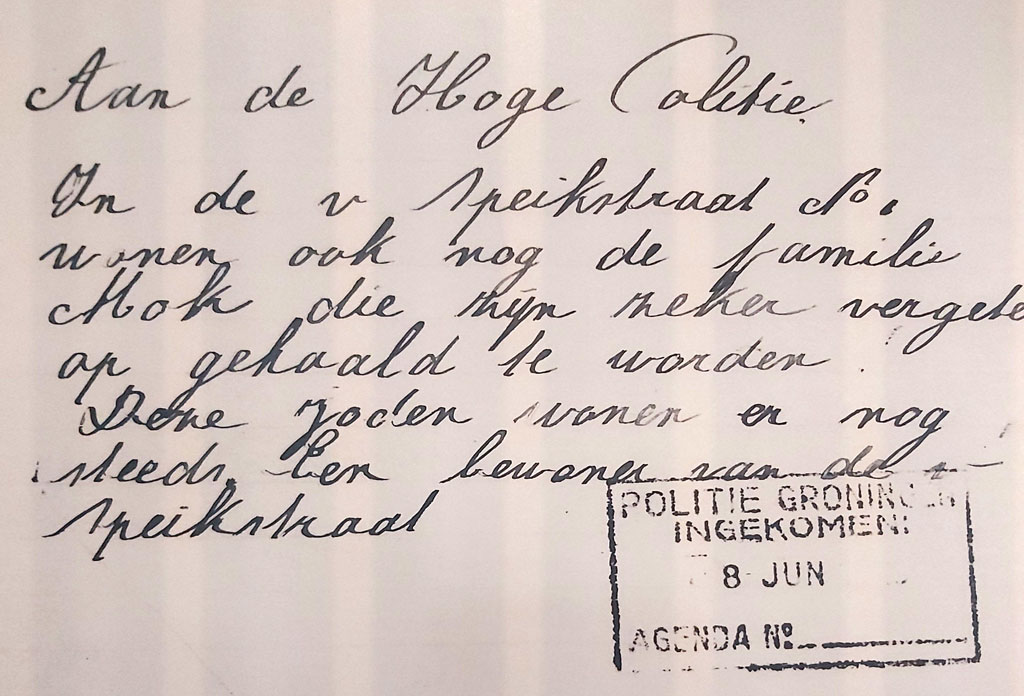 Aan de Hoge Politie.
In de v Speikstraat No.
wonen ook nog de familie
Mok die zijn zeker vergete
op gehaald te worden.
Deze joden wonen er nog
steeds. Een bewoner van de v
Speikstraat
POLITIE GRONINGEN
INGEKOMEN:
8 JUN
AGENDA No.